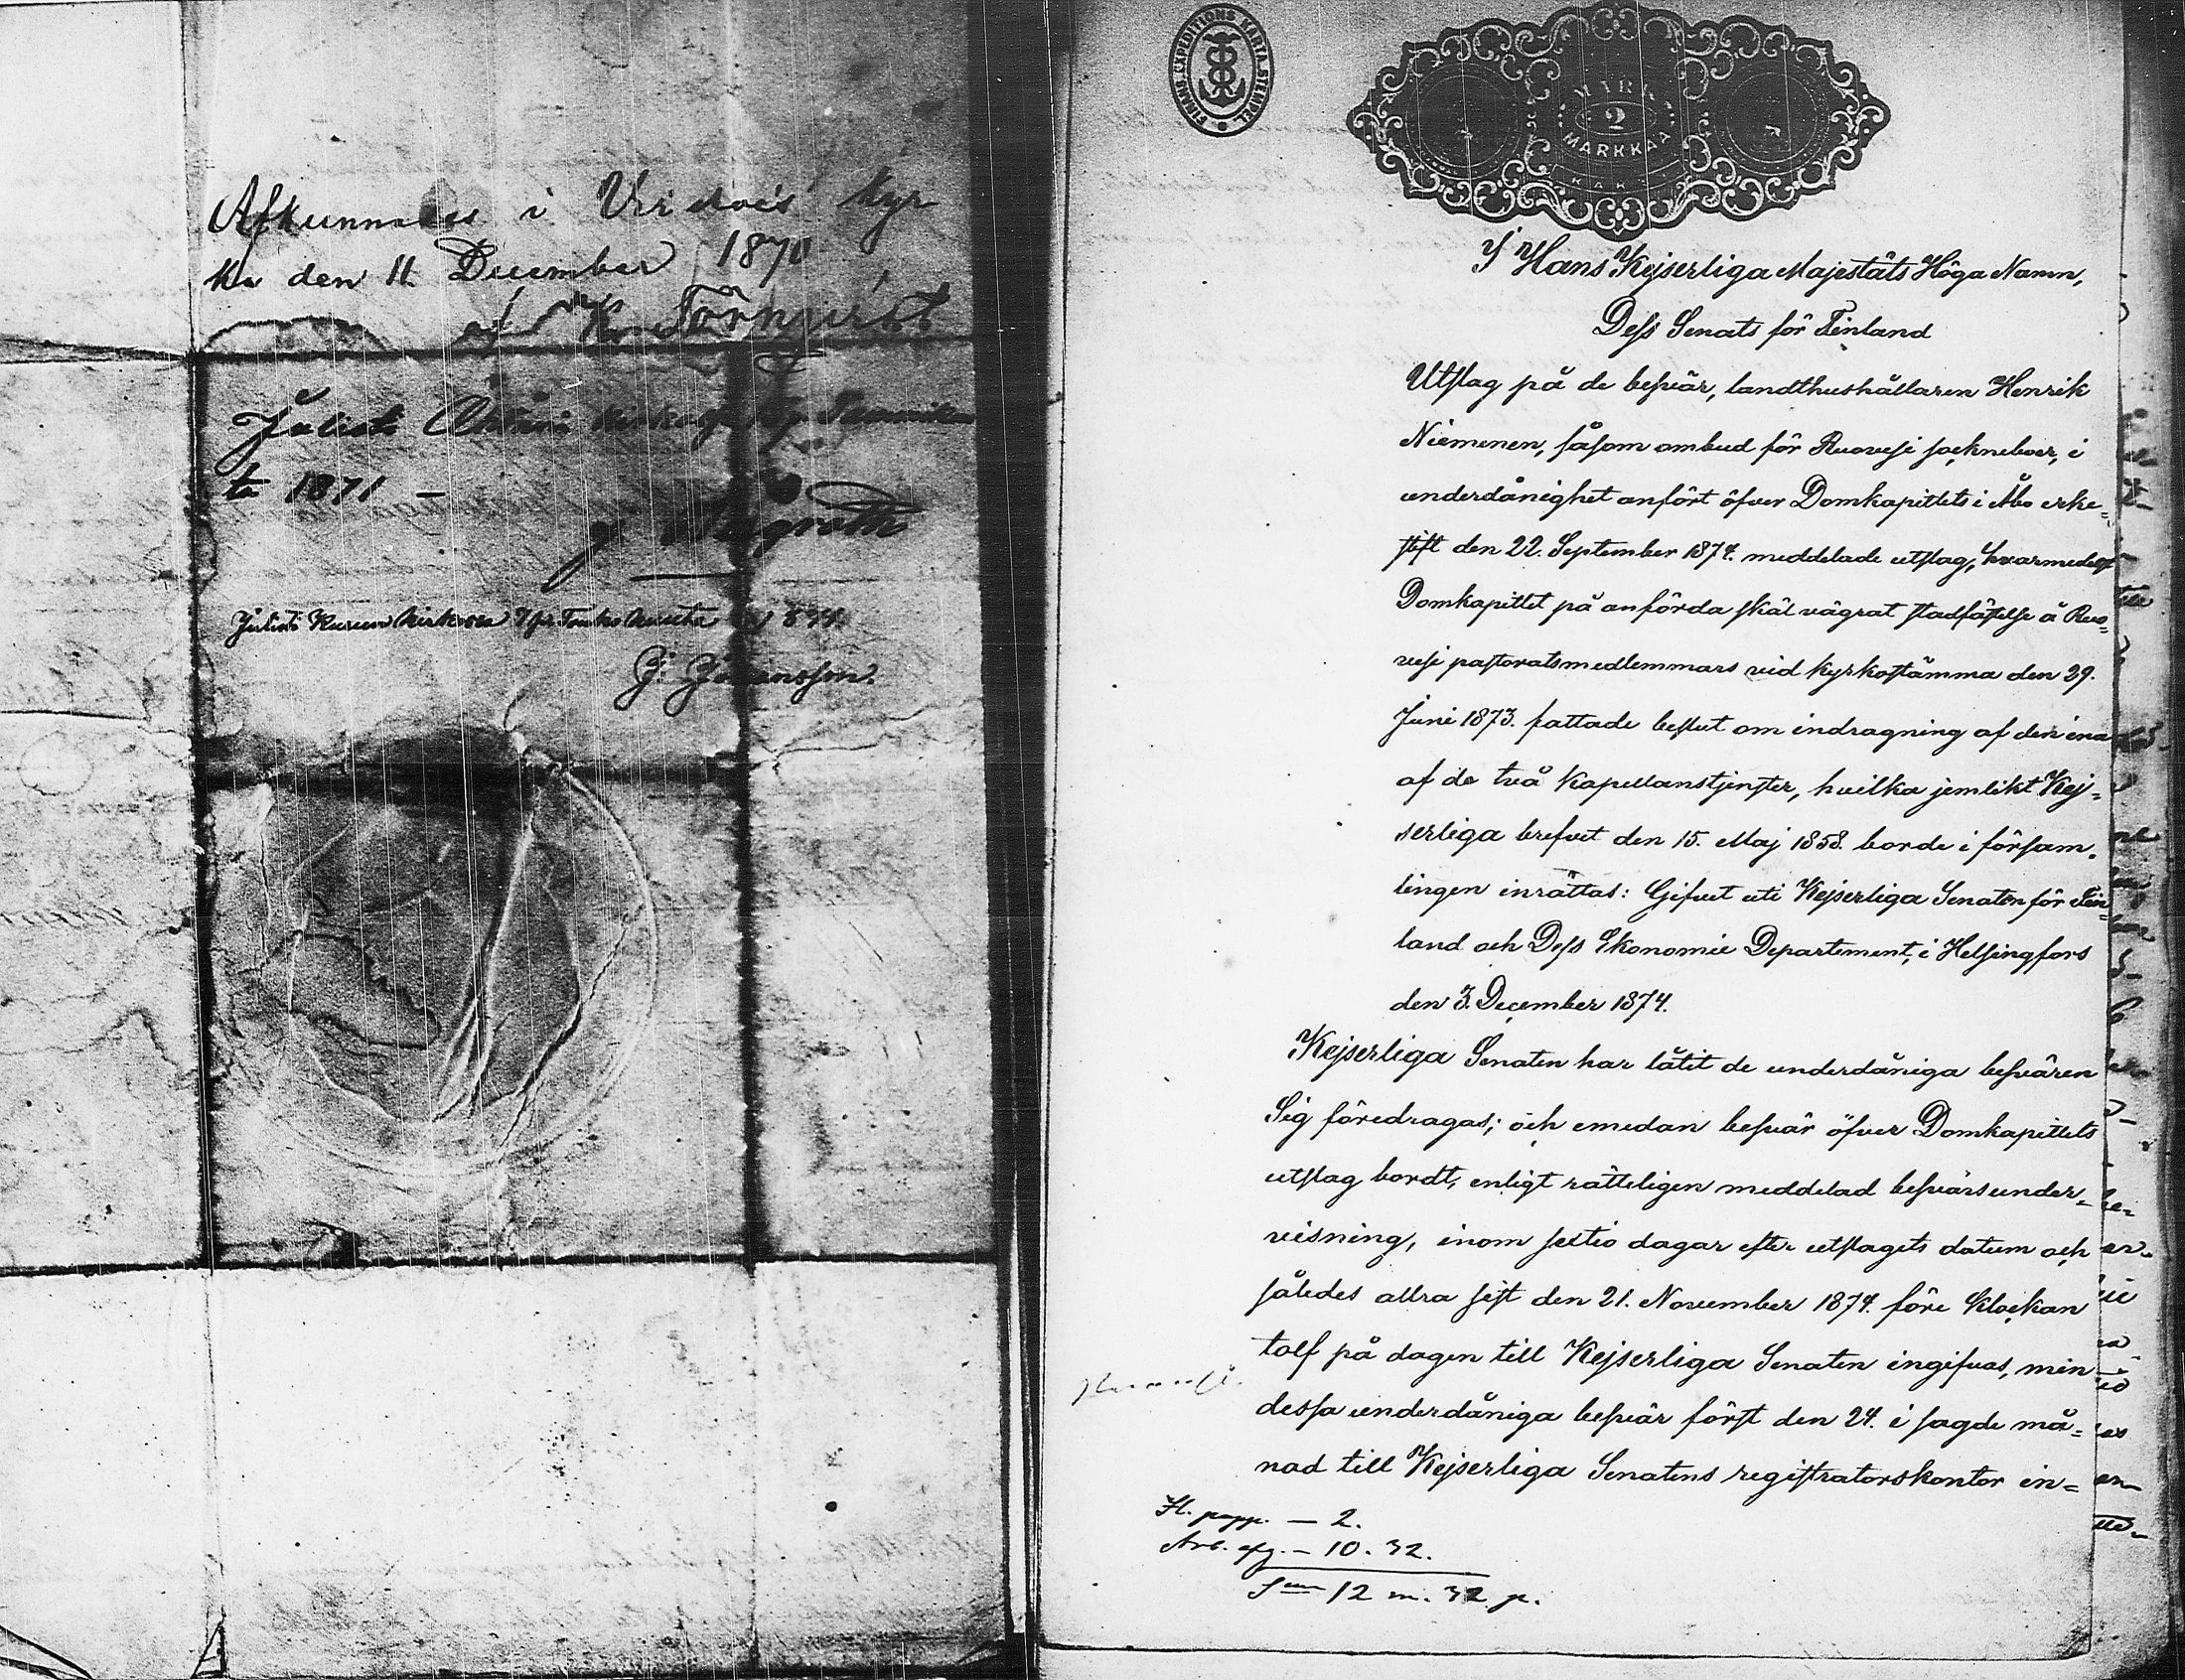 Afkunnades i Virdois kyr
ka den 11. December 1870
af K. Törnqvist
Julist. Ähtäri kirkossa
ta 1871 –
Julisti Kurun kirkossa 7 p. Touko kuuta 1871.
J. Johansson.
FINANS EXPEDITIONS KARTA STEMPEL
MARK
2
MARKKAA
I Hans Kejserliga Majestäts Höga Namn,
Dess Senats för Finland
Utslag på de besvär, landthushållaren Henrik
Niemenen, såsom ombud för Ruovesi sockneboer, i
underdånighet anfört öfver Domkapitlets i Åbo erke-
stift den 22. September 1874. meddelade utslag, hvarmedelst
Domkapitlet på anförda skäl vägrat stadfästelse å Ruo-
vesi pastoratsmedlemmars vid kyrkostämma den 29.
Juni 1873. fattade beslut om indragning af den ena
af de två kapellanstjenster, hvilka jemlikt Kej-
serliga brefvet den 15. Maj 1858. borde i försam-
lingen inrättas: Gifvet uti Kejserliga Senaten för Fin-
land och Dess Ekonomie Departement, i Helsingfors
den 3. December 1874.
Kejserliga Senaten har låtit de underdåniga besvären
Sig föredragas; och emedan besvär öfver Domkapitlets
utslag bordt, enligt rätteligen meddelad besvärsunder-
visning, inom sextio dagar efter utslagets datum och
således allra sist den 21. November 1874. före klockan
tolf på dagen till Kejserliga Senaten ingifvas, men
dessa underdåniga besvär först den 24. i sagde må-
nad till Kejserliga Senatens registratorskontor in-
St. papp. – 2.
Arb. afg. – 10. 32.
Sum 12 m. 32 p.